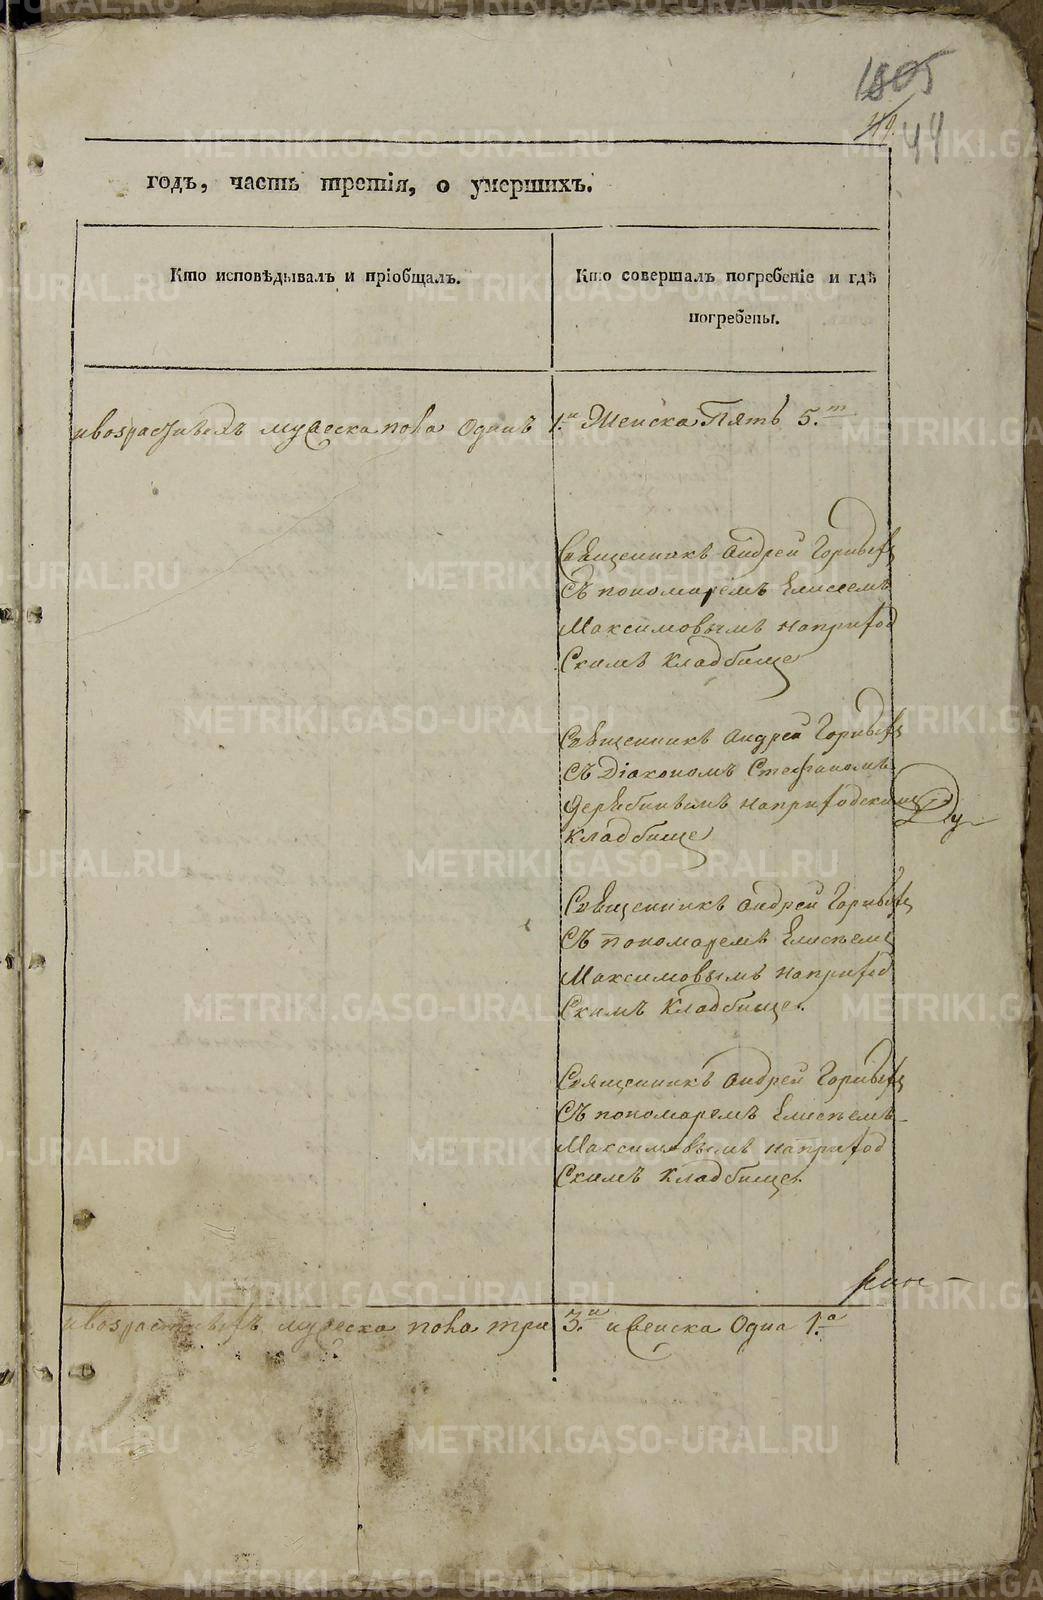 1805
49.
44
годъ, часть третія, о умершихъ.
Кто исповѣдывалъ и пріобщалъ.
Кто совершалъ погребеніе и гдѣ
погребены.
мужеска пола одинъ 1.й Женска Пять 5.т
Священникъ Андрей
Съ пономаремъ Елисеемъ
Максимовымъ наприход
Скимъ Кладбище
Священникъ Андрей
Съ Діакономъ Стефаномъ
наприходскимъ
Кладбище
Священникъ Андрей
Съ пономаремъ Елисѣемъ
Максимовымъ наприход
Скимъ Кладбище.
Священникъ Андрей
Съ пономаремъ Елисѣемъ
Максимовымъ наприход
Скимъ Кладбище.
мужеска пола три 3.и иженска Одна 1.а
METRIKI.GASO-URAL.RU